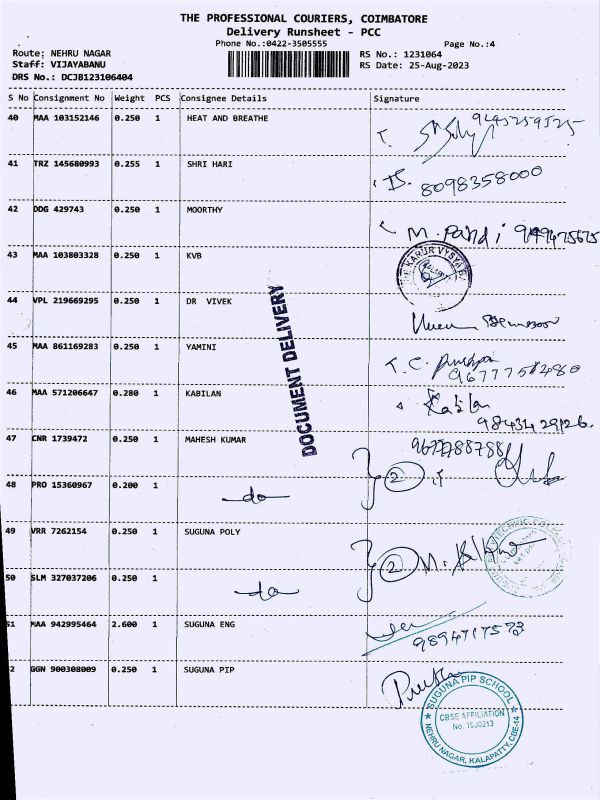 THE PROFESSIONAL COURIERS, COIMBATORE
Delivery Runsheet - PCC
Phone No.:0422-3505555 Page No.:4
Route: NEHRU NAGAR RS No.: 1231064
Staff: VIJAYABANU RS Date: 25-Aug-2023
DRS No.: DCJB123106404
S No Consignment No Weight PCS Consignee Details Signature
40 MAA 103152146 0.250 1 HEAT AND BREATHE
41 TRZ 145680993 0.255 1 SHRI HARI
8098358000
42 DDG 429743 0.250 1 MOORTHY
M. Pandi
43 MAA 103803328 0.250 1 KVB
44 VPL 219669295 0.250 1 DR VIVEK
DOCUMENT DELIVERY
45 MAA 861169283 0.250 1 YAMINI
46 MAA 571206647 0.280 1 KABILAN
Kabilan
9843429126.
47 CNR 1739472 0.250 1 MAHESH KUMAR
48 PRO 15360967 0.200 1
do 2
49 VRR 7262154 0.250 1 SUGUNA POLY
50 SLM 327037206 0.250 1
do 2
51 MAA 942995464 2.600 1 SUGUNA ENG
9894717573
2 GGN 900308009 0.250 1 SUGUNA PIP
SUGUNA PIP SCHOOL
CBSE AFFILIATION
No. ISJ0213
NEHRU NAGAR, KALAPATTY, CBE-14